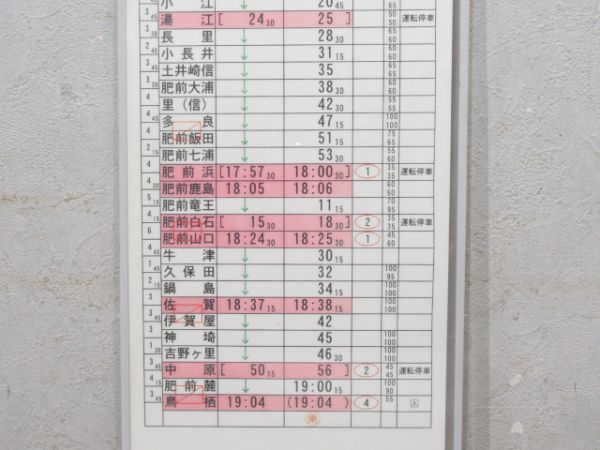 小 江 ↓ 20 45 65
湯 江 [ 24 30 25 ] 50 50 運転停車
長 里 ↓ 28 30 60 65
小長井 ↓ 31 15 65 60
土井崎信 ↓ 35 65 65
肥前大浦 ↓ 38 30 60 60
里(信) ↓ 42 30 55 55
多 良 ↓ 47 15 100 100
肥前飯田 ↓ 51 15 75 65
肥前七浦 ↓ 53 30 60
肥前浜 [17:57 30 18:00 30] ① 35 35 運転停車
肥前鹿島 18:05 18:06 35 60
肥前竜王 ↓ 11 15 70 95
肥前白石 [ 15 30 18 30] ② 35 35 運転停車
肥前山口 18:24 30 18:25 30 ① 45 60
牛 津 ↓ 30 15
久保田 ↓ 32 100 95
鍋 島 ↓ 34 15 100 100
佐 賀 18:37 15 18:38 15 100 100
伊賀屋 ↓ 42
神 埼 ↓ 45 100 100
吉野ヶ里 ↓ 46 30 100 100
中 原 [ 50 15 56 ] ② 45 45 運転停車
肥前麓 ↓ 19:00 15 100 90
鳥 栖 19:04 (19:04 ) ④ 55 入
乗